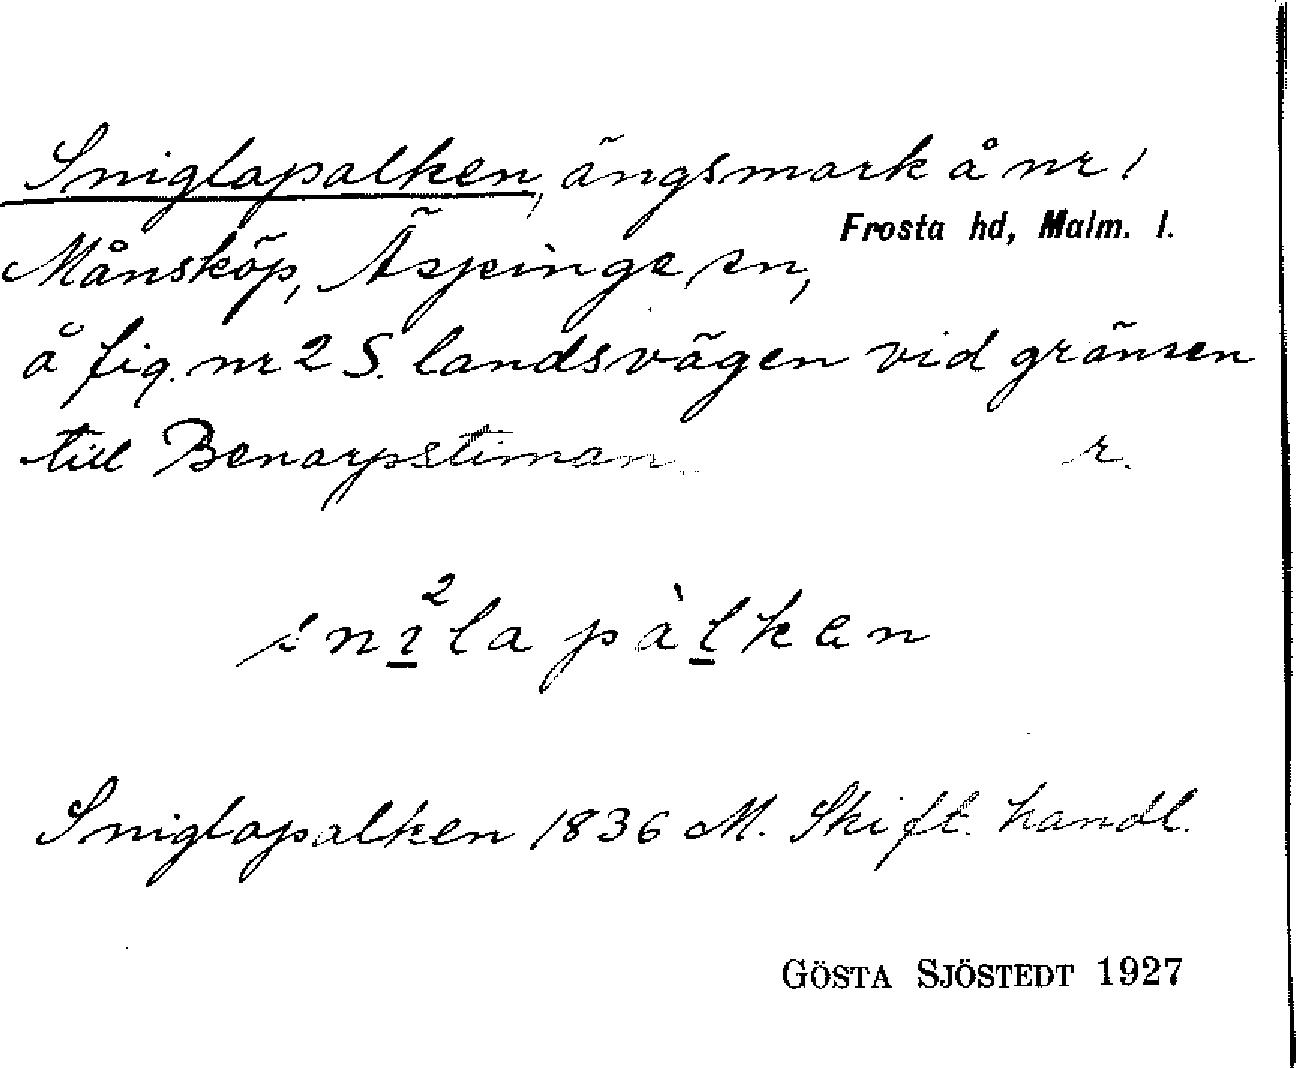 Sniglapalken, ängsmark å nr 1
Frosta hd, Malm. l.
Månsköp, Äspinge sn,
å fig. nr 2 S. landsvägen vid gränsen
till Benarpstiman. r.
snı̲²la pàl̲ken
Sniglapalken 1836 M. Skift. handl.
GÖSTA SJÖSTEDT 1927